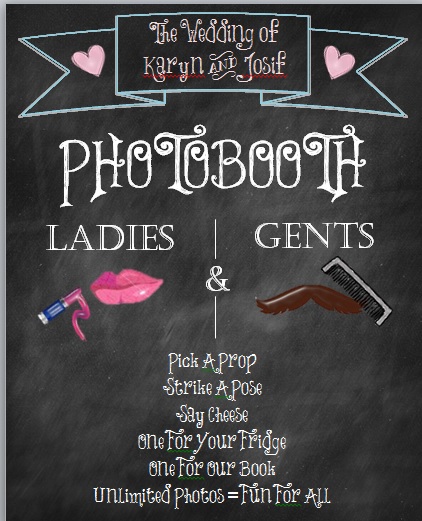 The Wedding of
Karyn AND Iosif
PHOTOBOOTH
LADIES | GENTS
&
Pick A Prop
Strike A Pose
Say Cheese
One For Your Fridge
One For Our Book
Unlimited Photos = Fun For All